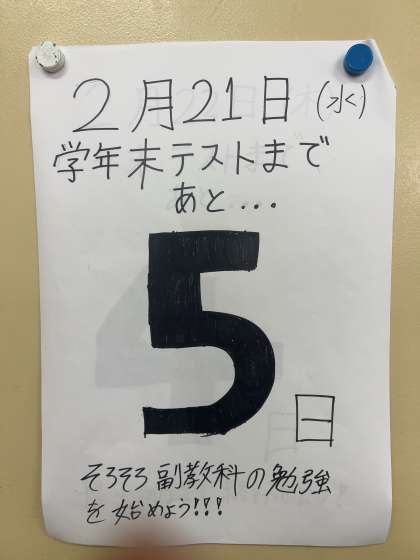 2月21日(水)
学年末テストまで
あと...
5日
そろそろ副教科の勉強
を始めよう!!!